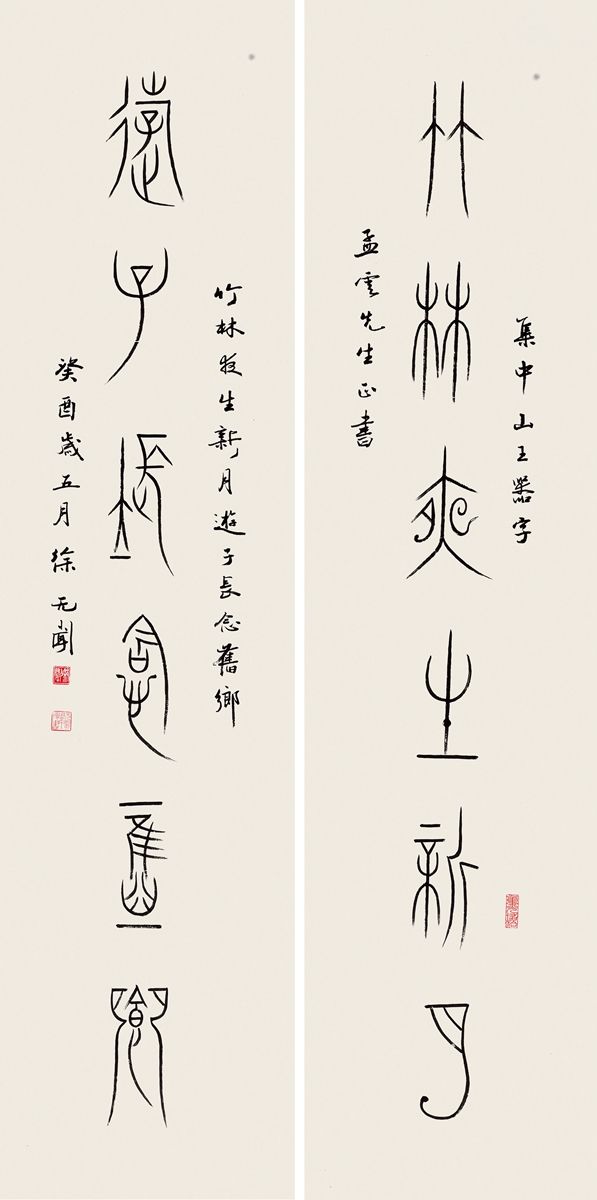 集中山王器字
竹林夜生新月
孟雲先生正書
竹林夜生新月遊子長念舊鄉
遊子長念舊鄉
癸酉歲五月 徐无聞